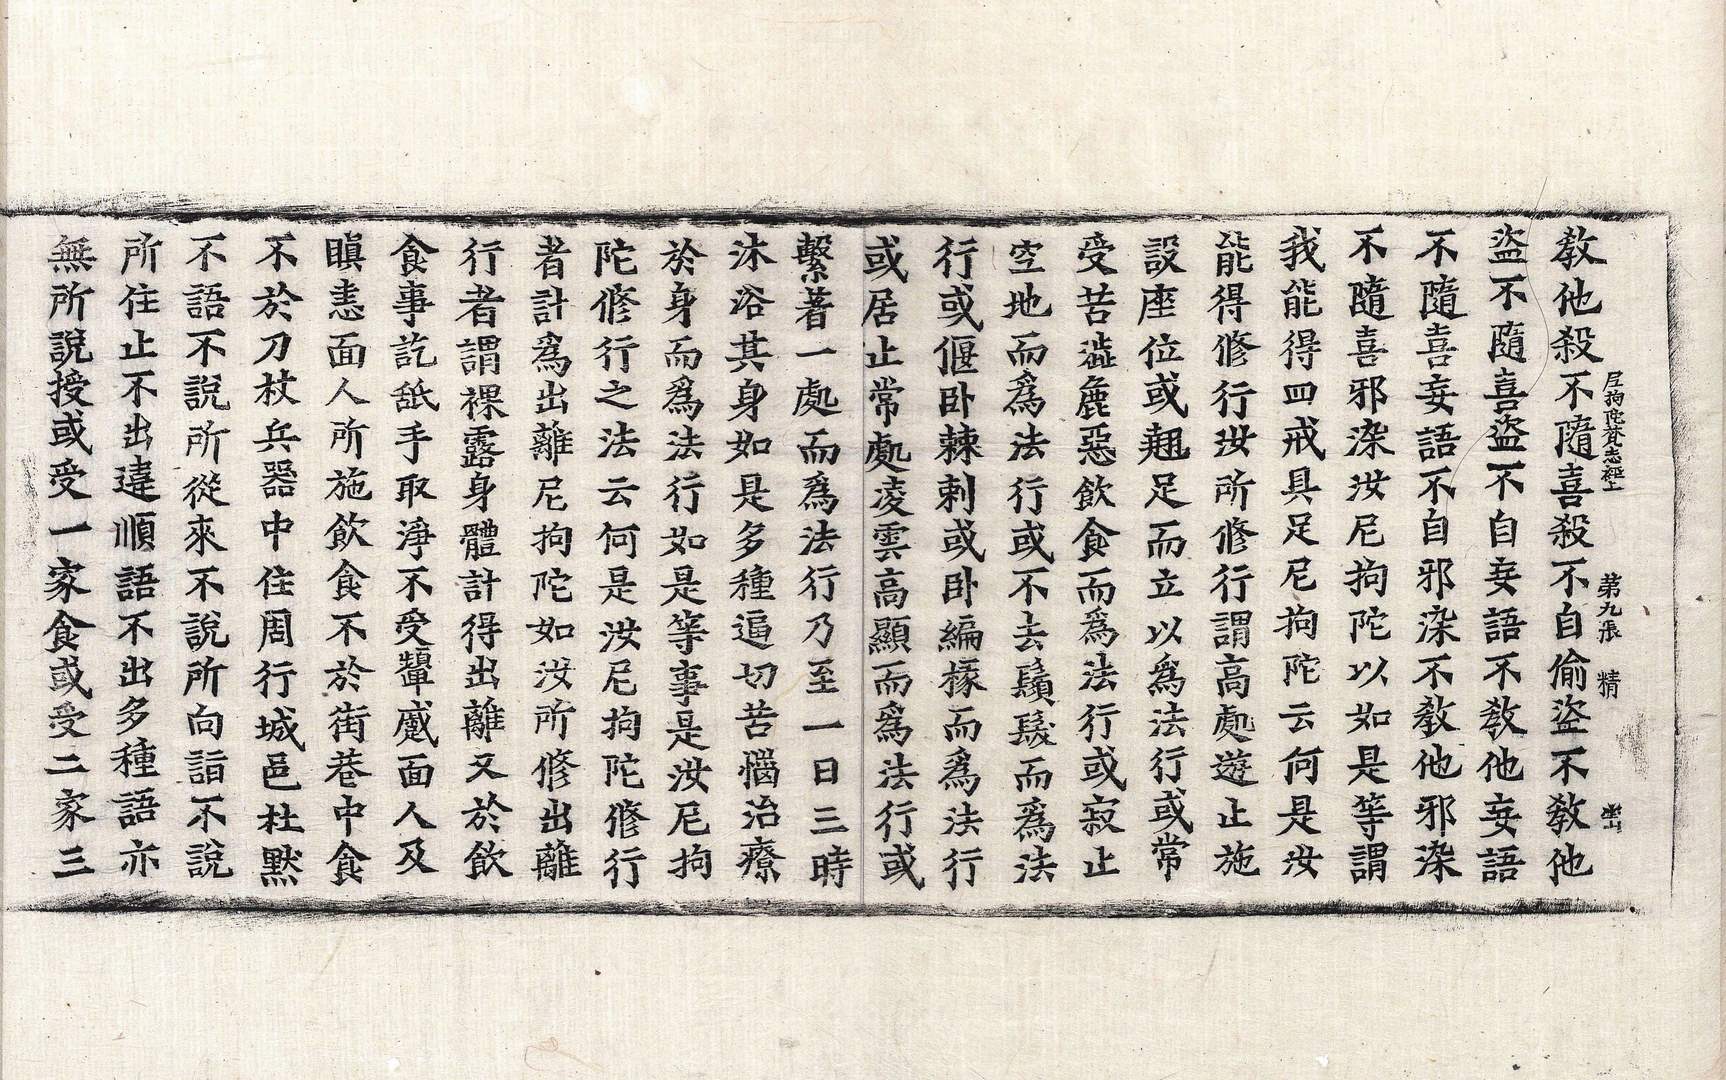 尼拘陁梵志經上 第九張 精
教他殺不隨喜殺不自偷盜不教他
盜不隨喜盜不自妄語不教他妄語
不隨喜妄語不自邪染不教他邪染
不隨喜邪染汝尼拘陀以如是等謂
我能得四戒具足尼拘陀云何是汝
能得修行汝所修行謂高處遊止施
設座位或翹足而立以為法行或常
受苦澁麁惡飲食而為法行或寂止
空地而為法行或不去鬚髮而為法
行或偃臥棘刺或臥編椽而為法行
或居止常處凌雲高顯而為法行或
繫著一處而為法行乃至一日三時
沐浴其身如是多種逼切苦惱治療
於身而為法行如是等事是汝尼拘
陀修行之法云何是汝尼拘陀修行
者計為出離尼拘陀如汝所修出離
行者謂裸露身體計得出離又於飲
食事訖舐手取淨不受顰蹙面人及
瞋恚面人所施飲食不於街巷中食
不於刀杖兵器中住周行城邑杜默
不語不說所從來不說所向詣不說
所住止不出違順語不出多種語亦
無所說授或受一家食或受二家三